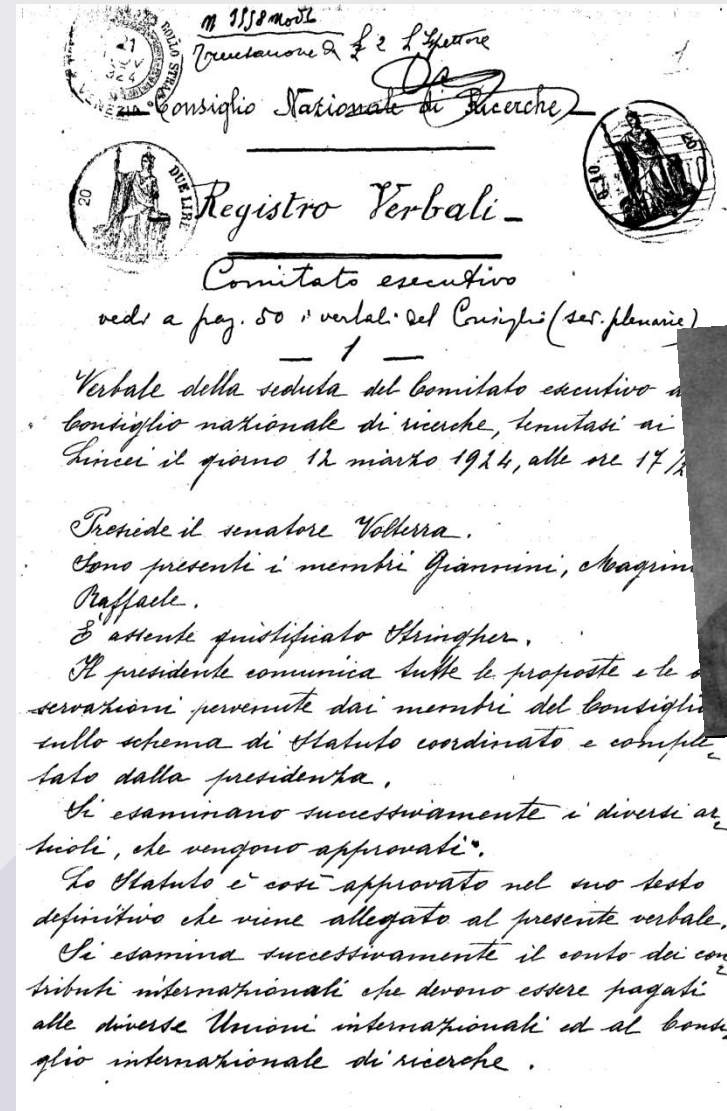 n 3558 mod 2
21
NOV
924
BOLLO STRA
VENEZIA
£ 2 L'Ispettore
1
Consiglio Nazionale di Ricerche
20
DUE LIRE
C. 10
Registro Verbali
Comitato esecutivo
vedi a pag. 50 i verbali del Consiglio (sed. plenarie)
1
Verbale della seduta del Comitato esecutivo
Consiglio nazionale di ricerche, tenutasi ai
Lincei il giorno 12 marzo 1924, alle ore 17 1/2
Presiede il senatore Volterra.
Sono presenti i membri Giannini, Magrini
Raffaele.
È assente giustificato Stringher.
Il presidente comunica tutte le proposte e le o
servazioni pervenute dai membri del Consiglio
sullo schema di Statuto coordinato e comple
tato dalla presidenza.
Si esaminano successivamente i diversi ar
ticoli, che vengono approvati.
Lo Statuto è così approvato nel suo testo
definitivo che viene allegato al presente verbale.
Si esamina successivamente il conto dei con
tributi internazionali che devono essere pagati
alle diverse Unioni internazionali ed al Consi
glio internazionale di ricerche.